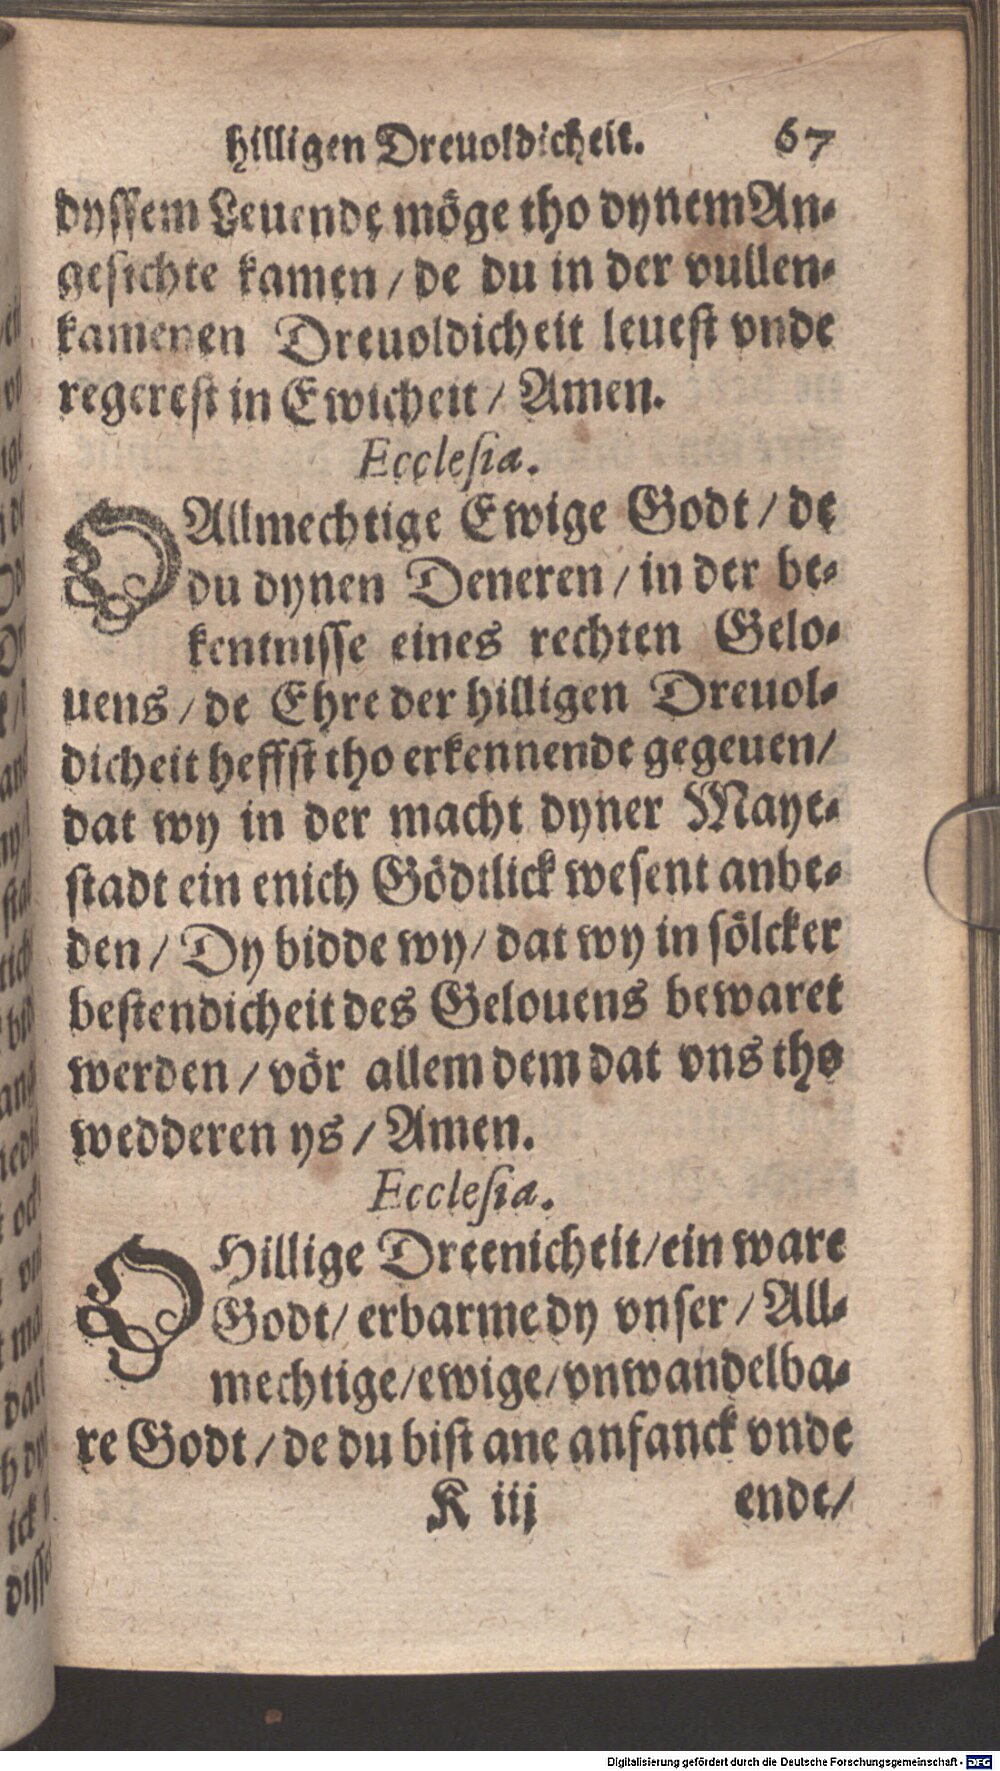 hilligen Dreuoldicheit. 67
dyssem Leuende möge tho dynem An-
gesichte kamen / de du in der vullen-
kamenen Dreuoldicheit leuest vnde
regerest in Ewicheit / Amen.
Ecclesia.
O Allmechtige Ewige Godt / de
du dynen Deneren / in der be-
kentnisse eines rechten Gelo-
uens / de Ehre der hilligen Dreuol-
dicheit heffst tho erkennende gegeuen /
dat wy in der macht dyner Maye-
stadt ein enich Gödtlick wesent anbe-
den / Dy bidde wy / dat wy in sölcker
bestendicheit des Gelouens bewaret
werden / vör allem dem dat vns tho
wedderen ys / Amen.
Ecclesia.
O Hillige Dreenicheit / ein ware
Godt / erbarme dy vnser / All-
mechtige / ewige / vnwandelba-
re Godt / de du bist ane anfanck vnde
K iij ende /
Digitalisierung gefördert durch die Deutsche Forschungsgemeinschaft - DFG